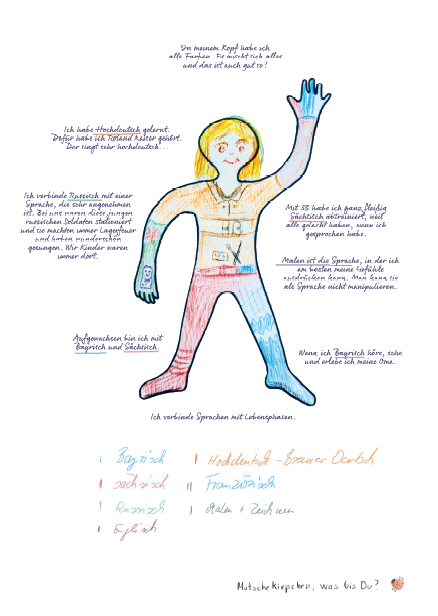 In meinem Kopf habe ich
alle Farben. Es mischt sich alles
und das ist auch gut so!
Ich habe Hochdeutsch gelernt.
Dafür habe ich Roland Kaiser gehört.
Der singt sehr hochdeutsch...
Ich verbinde Russisch mit einer
Sprache, die sehr angenehm
ist. Bei uns waren diese jungen
russischen Soldaten stationiert
und sie machten immer Lagerfeuer
und haben wunderschön
gesungen. Wir Kinder waren
immer dort.
Mit 38 habe ich ganz fleißig
Sächsisch abtrainiert, weil
alle gelacht haben, wenn ich
gesprochen habe.
Malen ist die Sprache, in der ich
am besten meine Gefühle
ausdrücken kann. Man kann sie
als Sprache nicht manipulieren.
Aufgewachsen bin ich mit
Bayrisch und Sächsisch.
Wenn ich Bayrisch höre, sehe
und erlebe ich meine Oma.
Ich verbinde Sprachen mit Lebensphasen.
Bayrisch
Hochdeutsch -
sächsisch
Französisch
Russisch
Malen + Zeichnen
Englisch
Mutschekiepchen, was bis Du?